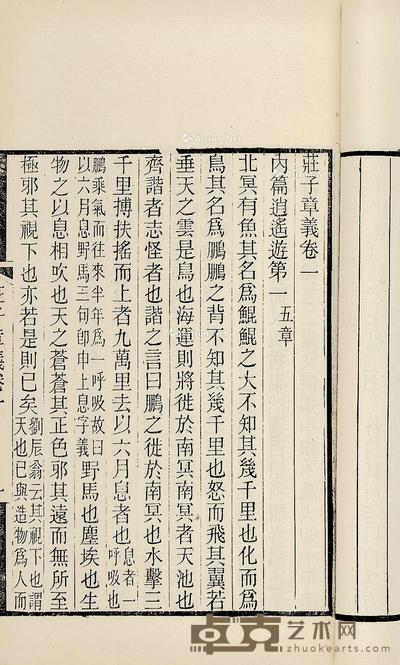 莊子章義卷一
內篇逍遙遊第一 五章
北冥有魚其名爲鯤鯤之大不知其幾千里也化而爲
鳥其名爲鵬鵬之背不知其幾千里也怒而飛其翼若
垂天之雲是鳥也海運則將徙於南冥南冥者天池也
齊諧者志怪者也諧之言曰鵬之徙於南冥也水擊三
千里搏扶搖而上者九萬里去以六月息者也 息者一呼吸也
鵬乘氣而往來半年爲一呼吸故曰以六月息野馬三句卽申上息字義 野馬也塵埃也生
物之以息相吹也天之蒼蒼其正色邪其遠而無所至
極邪其視下也亦若是則已矣 劉辰翁云其視下也謂天也已與造物爲人而
卓克艺术网
www.zhuokearts.com
Artron.Net